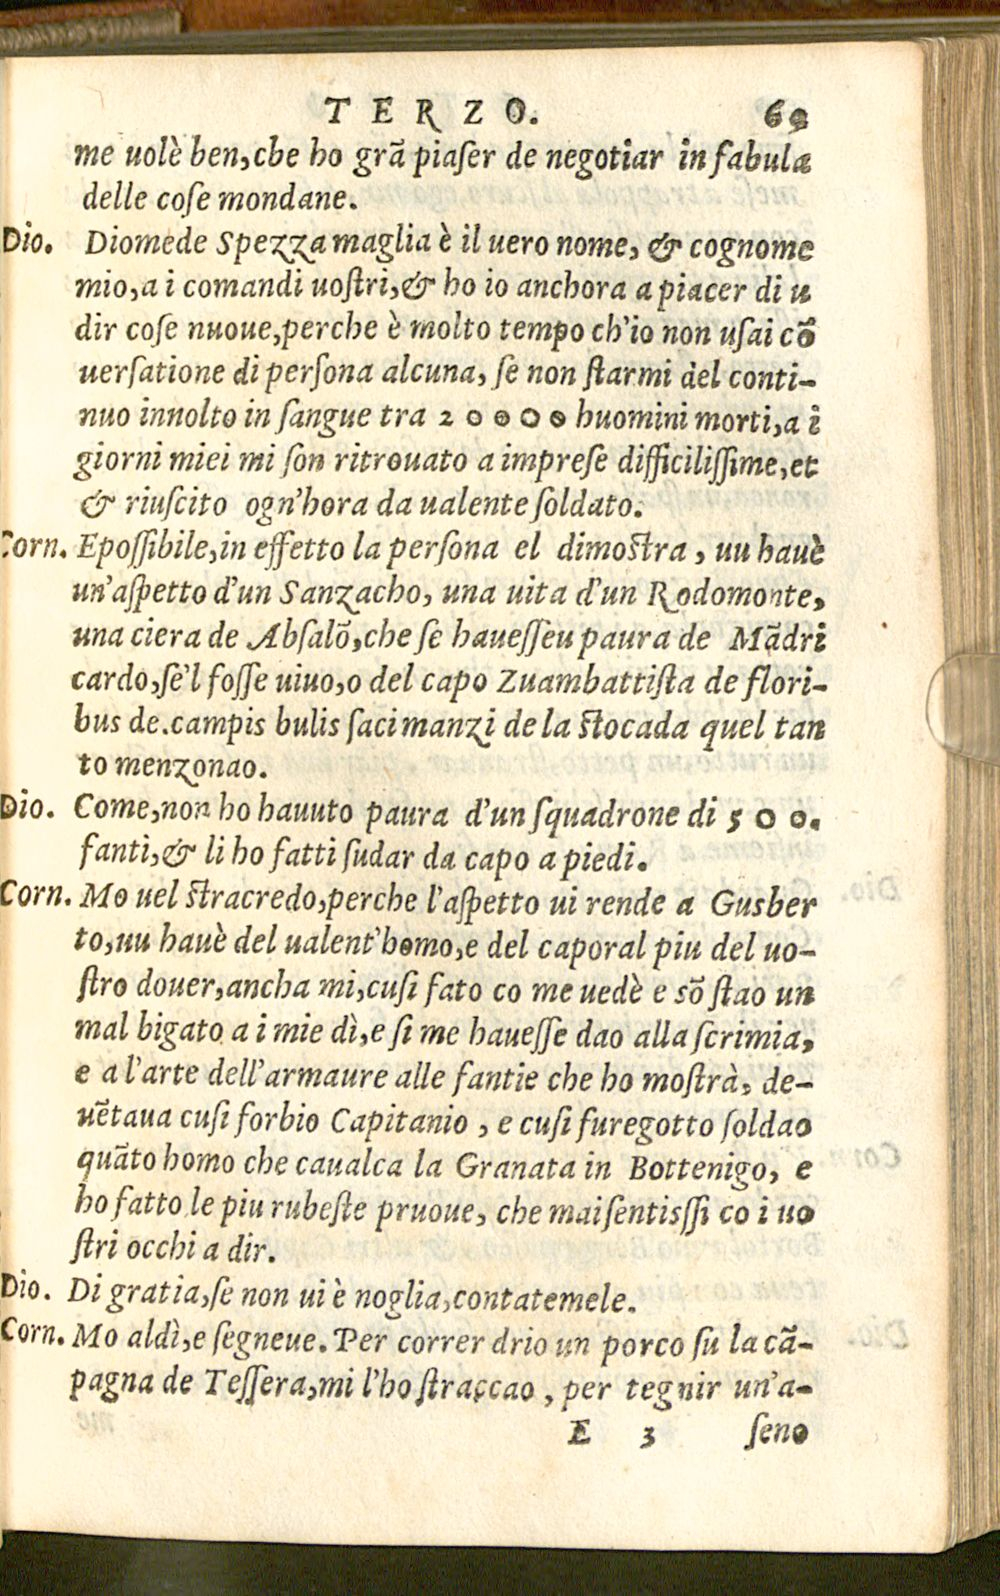 TERZO. 69
me uolè ben, che ho grã piaſer de negotiar in fabula
delle coſe mondane.
Dio. Diomede Spezza maglia è il uero nome, & cognome
mio, a i comandi uoſtri, & ho io anchora a piacer di u
dir coſe nuoue, perche è molto tempo ch'io non uſai cõ
uerſatione di perſona alcuna, ſe non ſtarmi del conti-
nuo inuolto in ſangue tra 20000 huomini morti, a i
giorni miei mi ſon ritrouato a impreſe difficiliſſime, et
& riuſcito ogn'hora da ualente ſoldato.
Corn. E poſſibile, in effetto la perſona el dimoſtra, uu hauè
un'aſpetto d'un Sanzacho, una uita d'un Rodomonte,
una ciera de Abſalõ, che ſe haueſſeu paura de Mãdri
cardo, ſe'l foſſe uiuo, o del capo Zuambattiſta de flori-
bus de.campis bulis ſaci manzi de la ſtocada quel tan
to menzonao.
Dio. Come, non ho hauuto paura d'un ſquadrone di 500.
fanti, & li ho fatti ſudar da capo a piedi.
Corn. Mo uel ſtracredo, perche l'aſpetto ui rende a Gusber
to, uu hauè del ualent'homo, e del caporal piu del uo-
ſtro douer, ancha mi, cuſi fato co me uedè e sõ ſtao un
mal bigato a i mie dì, e ſi me haueſſe dao alla ſcrimia,
e a l'arte dell'armaure alle fantie che ho moſtrà, de-
uẽtaua cuſi forbio Capitanio, e cuſi furegotto ſoldao
quãto homo che caualca la Granata in Bottenigo, e
ho fatto le piu rubeſte pruoue, che mai ſentiſſſi co i uo
ſtri occhi a dir.
Dio. Di gratia, ſe non ui è noglia, contatemele.
Corn. Mo aldì, e ſegneue. Per correr drio un porco ſu la cã-
pagna de Teſſera, mi l'ho ſtraccao, per tegnir un'a-
E 3 ſeno